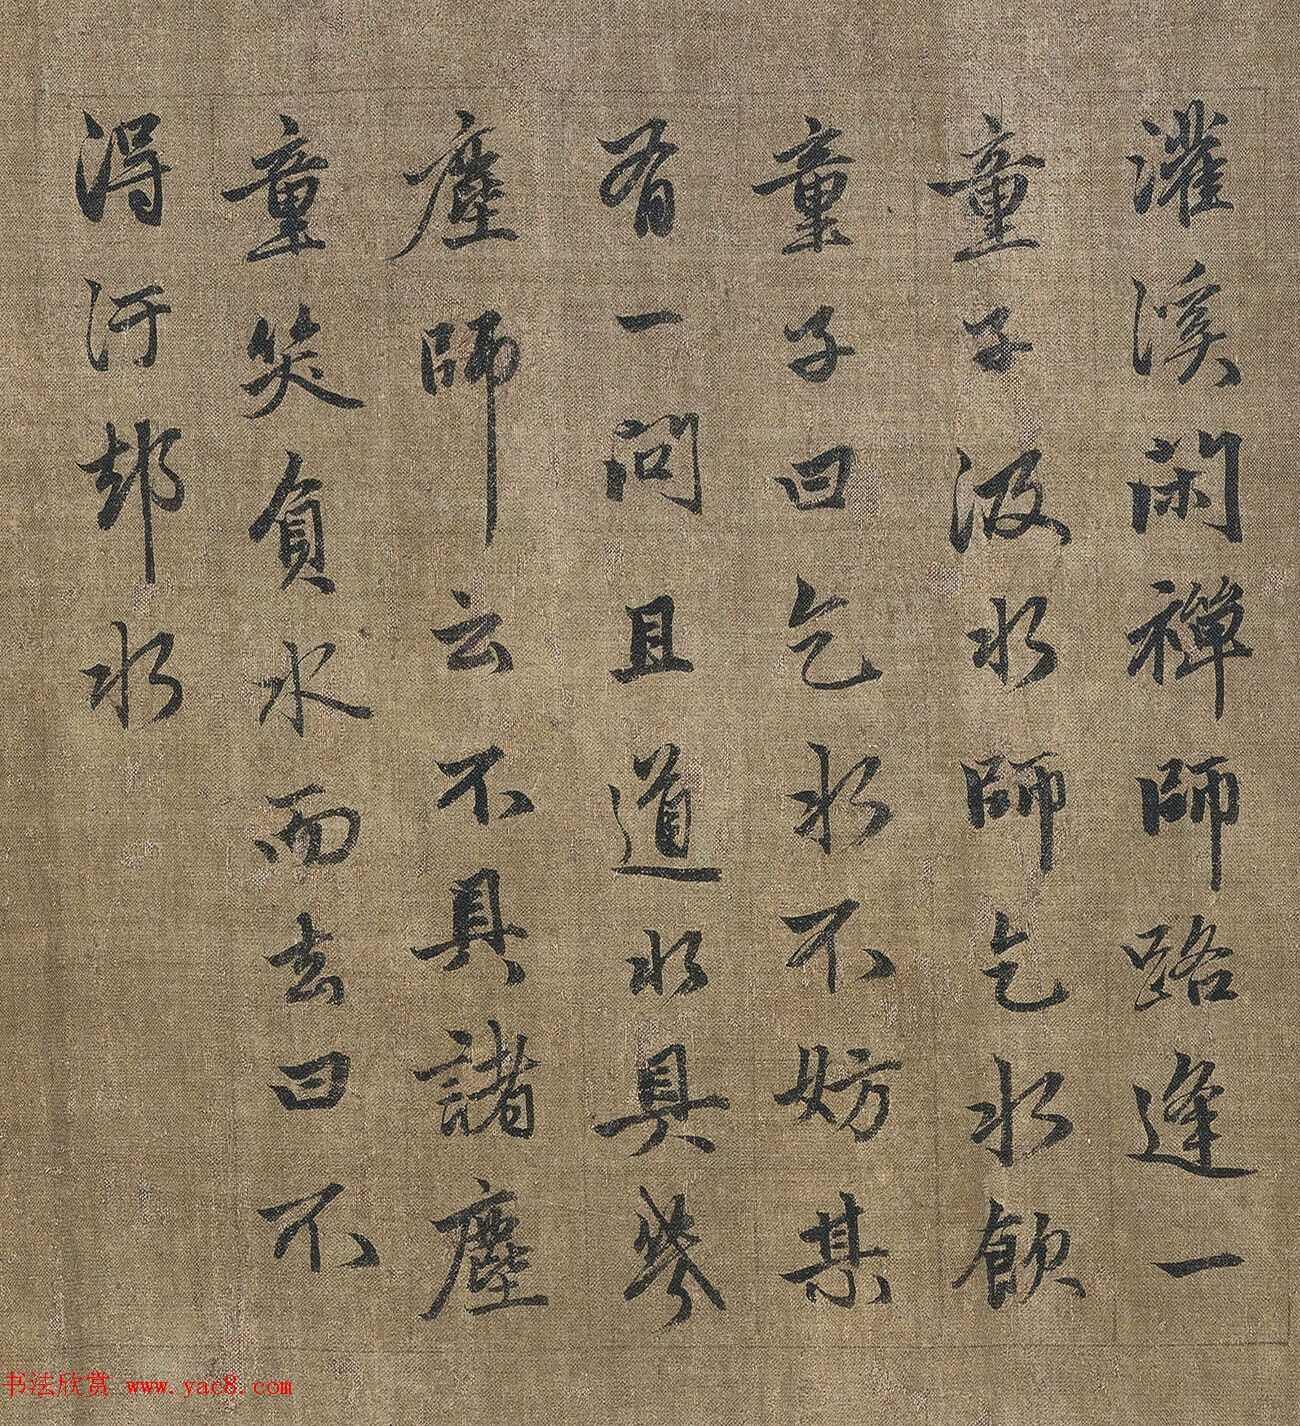 灌溪闲禪師路逢一
童子汲水師乞水飲
童子曰乞水不妨某
有一問且道水具幾
塵師云不具諸塵
童笑負水而去曰不
得汙却水
书法欣赏 www.yac8.com